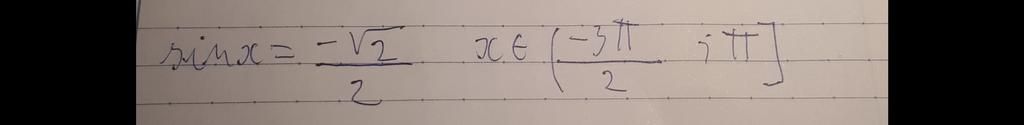 sinx = -√2/2 x ∈ (-3π/2 ; π]